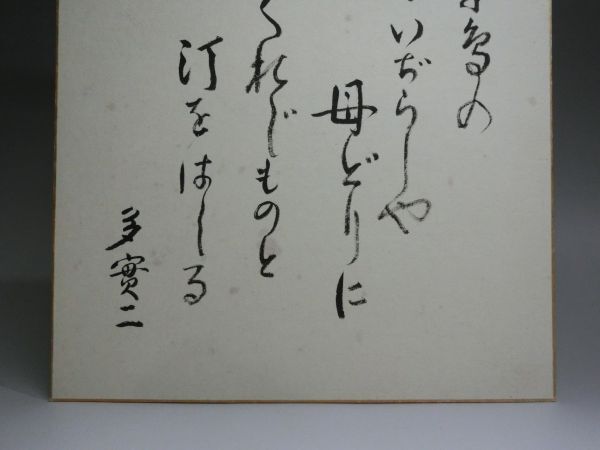 鳥の
いぢらしや
母どりに
くれじものと
汀をはしる
多實二